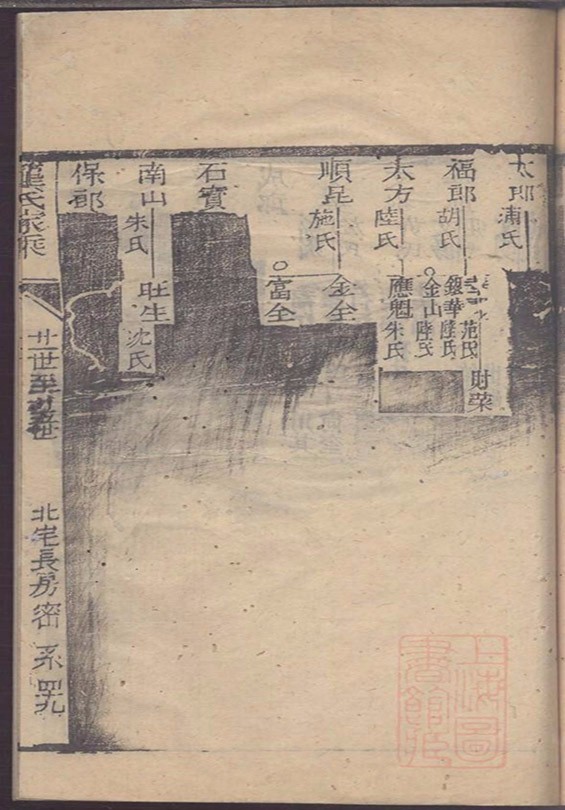 太郎 浦氏
福郎 胡氏
范氏 財榮
銀華 陸氏
金山 陸氏
太方 陸氏
應魁 朱氏
順昆 施氏
金全
富全
石寶
南山 朱氏
旺生 沈氏
保郎
氏家乘
廿世至廿五世
北宅長房密系 四九
上海圖書館藏